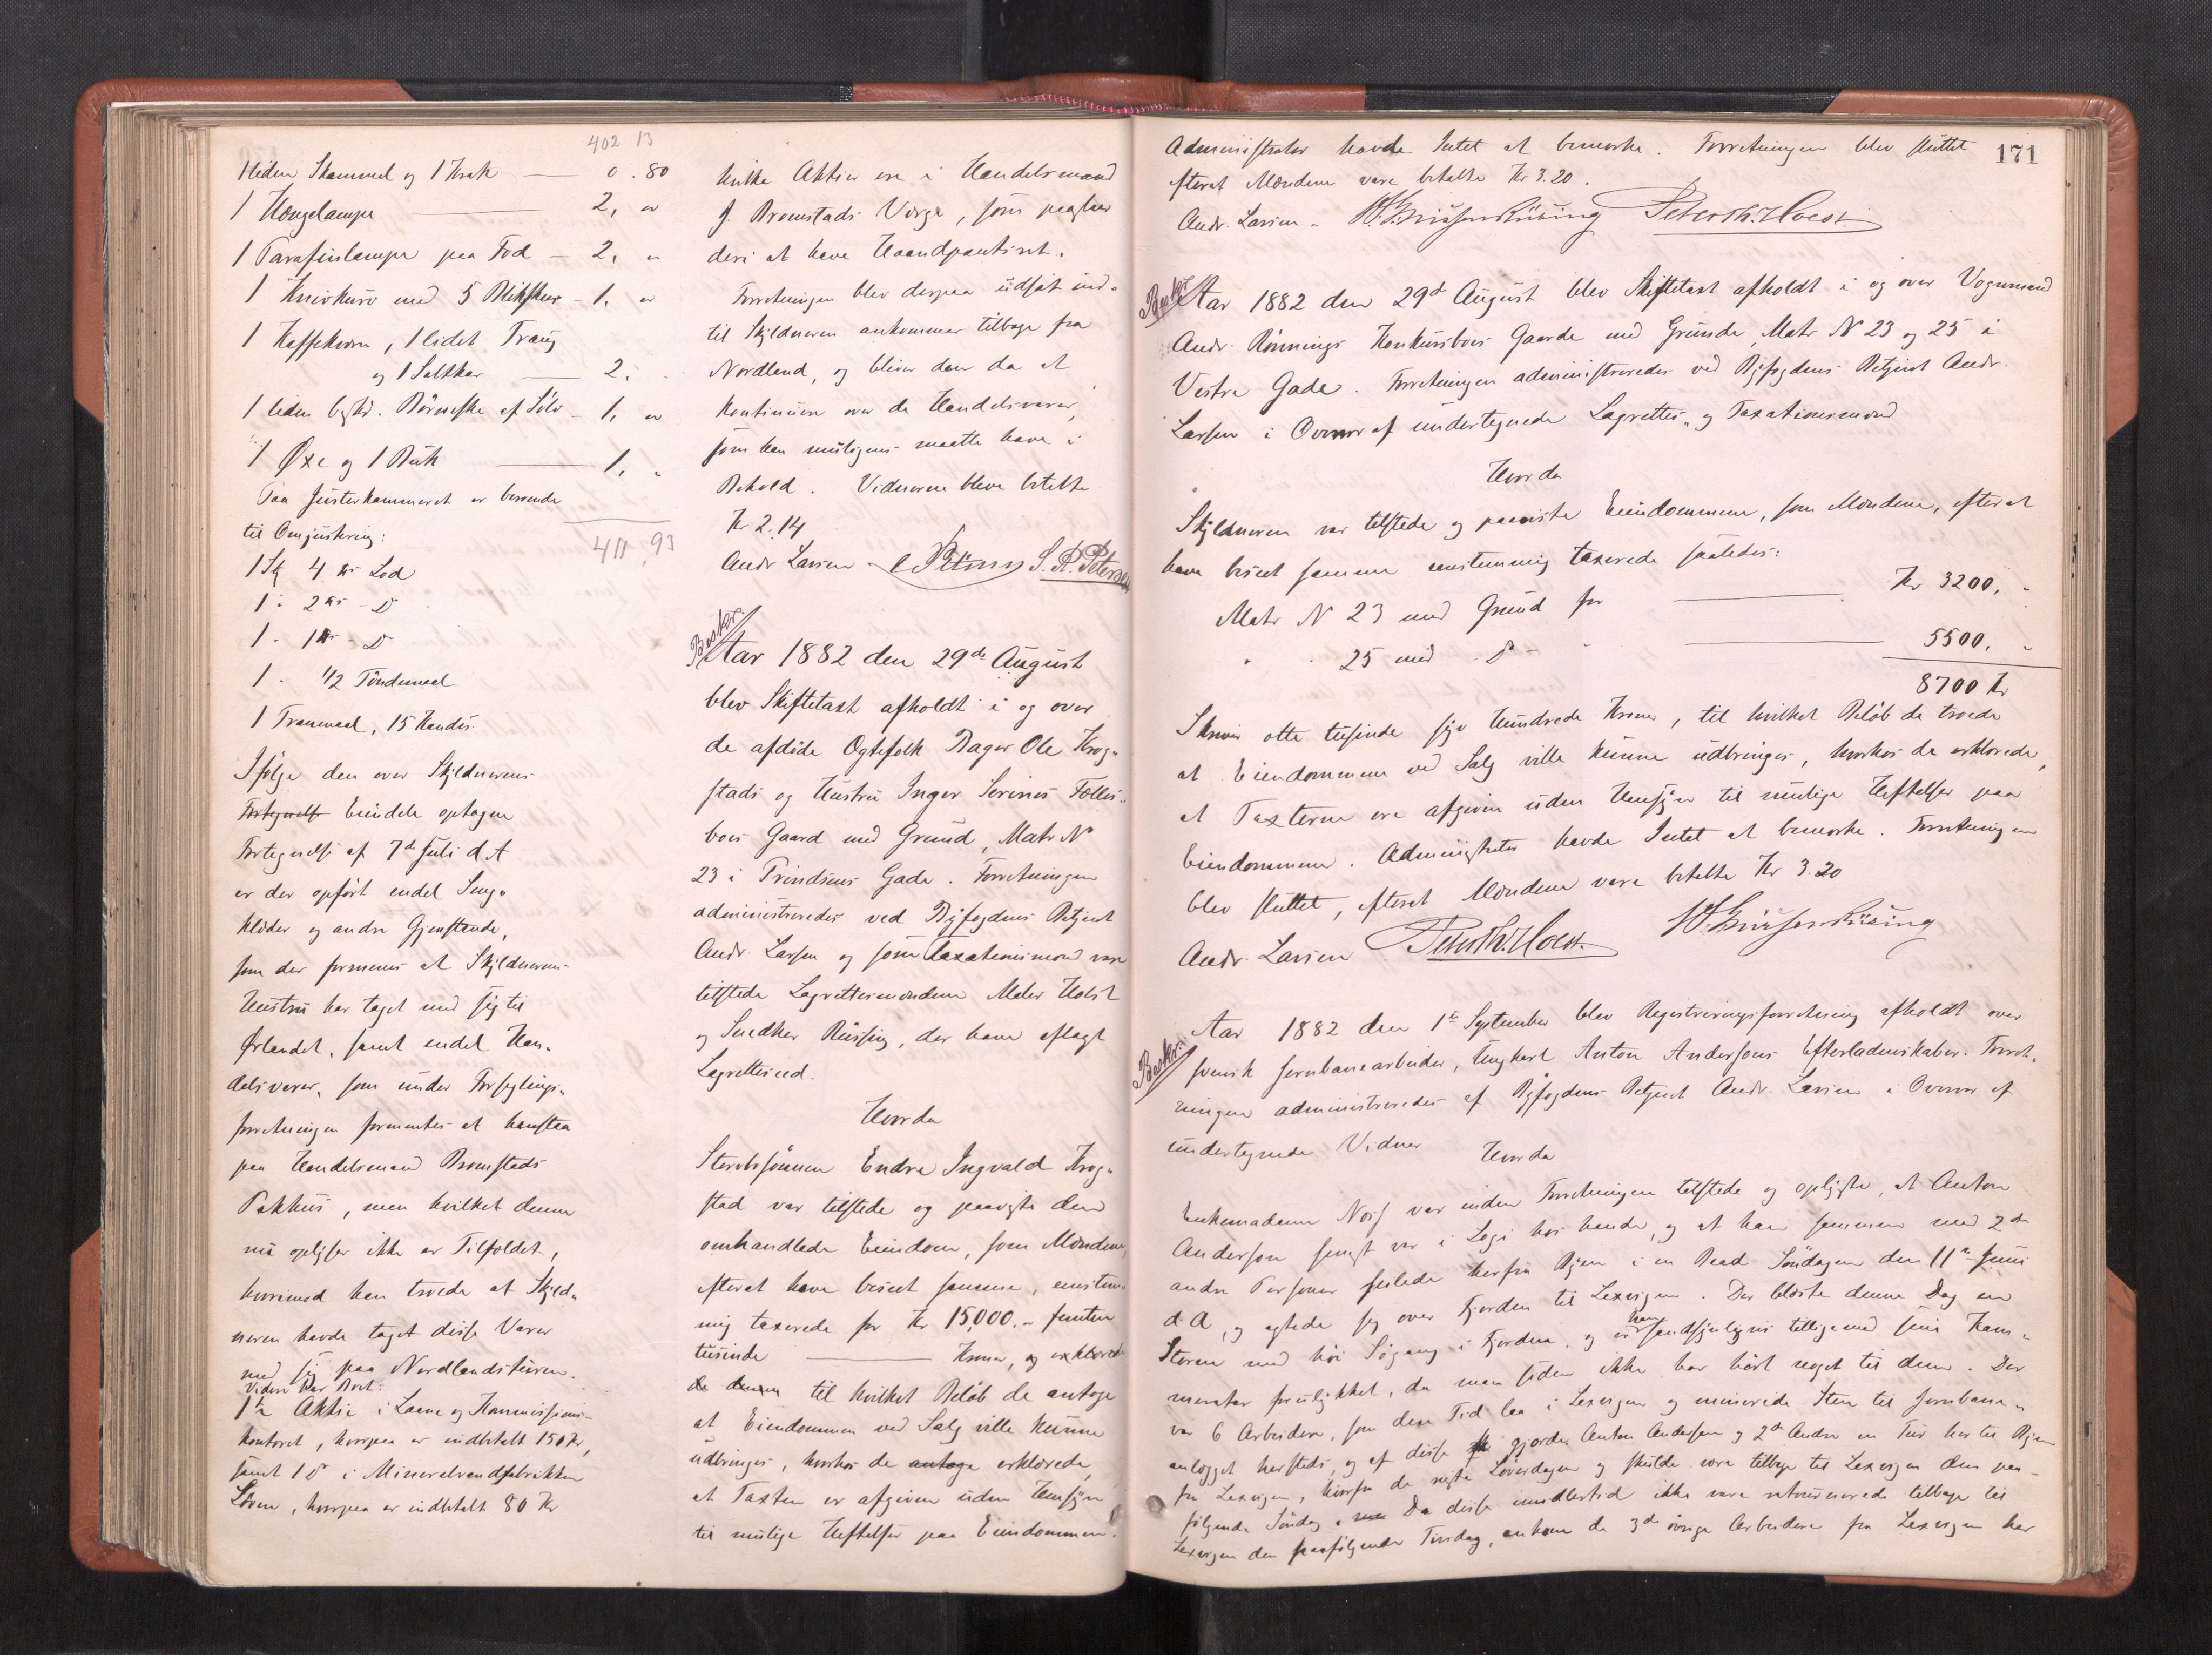 402 13
1 liden Skammel og 1 Krak — 0.80
1 Hængelampe — 2, "
1 Parafinlampe paa Fod — 2, "
1 Knivkurv med 5 Blikskeer - 1, "
1 Kaffekværn, 1 lidet Traug
og 1 Saltkar — 2,
1 liden beskd. Børneske af Sølv - 1, "
1 Øxe og 1 Bøk — 1, "
411,93
Paa Justerkammeret er beroende
til Omjustering:
1 Stk 4 de Lod
1 - 2 des - D
1 - 1 des - D
1 - 1/2 Tøndemaal
1 Tranmaal, 15 Kander
Ifølge den over Skyldnerens
Fortegnelse Eiendele optagne
Fortegnelse af 7de Juli d.A
er der opført endel Senge-
klæder og andre Gjenstande,
som der formenes at Skyldnerens
Hustru har taget med sig til
Ørlandet, samt endel Han-
delsvarer, som under Forseglings-
forretningen formentes at henstaa
paa Handelsmand Bromstads
Pakhus, men hvilket denne
nu oplyser ikke er Tilfældet,
hvorimod han troede at Skyld-
neren havde taget disse Varer
med sig paa Nordlandsturen.
Videre har Boet:
1 Aktie i Laane og Kommissions-
kontoret, hvorpaa er indbetalt 150 Kr,
samt 1 D i Mineralvandfabrikken
Løven, hvorpaa er indbetalt 80 Kr
hvilke Aktier ere i Handelsmand
J. Bromstads Værge, som paastaar
deri at have Haandpantsret.
Forretningen blev derpaa udsat ind-
til Skyldneren ankommer tilbage fra
Nordland, og bliver den da at
kontinuere over de Handelsvarer,
som han muligens maatte have i
Behold. Vidnerne bleve betalte
Kr 2.14
Andr Larsen S. R. Petersen
Beskr.
Aar 1882 den 29de August
blev Skiftetaxt afholdt i og over
de afdøde Ægtefolk Bager Ole Krog-
stads og Hustru Inger Serines Fælles-
boes Gaard med Grund, Matr No
23 i Prindsens Gade. Forretningen
administreredes ved Byfogdens Betjent
Andr Larsen og som Taxationsmænd vare
tilstede Lagrettesmændene Maler Holst
og Snedker Rüssing, der have aflagt
Lagrettesed.
Hvorda
Sterbosønnen Endre Ingvald Krog-
stad var tilstede og paaviste den
omhandlede Eiendom, som Mændene,
efterat have beseet samme, enstem-
mig taxerede for Kr 15,000.- femten
tusinde — Kroner, og erklærede
de denne til hvilket Beløb de antoge
at Eiendommen ved Salg ville kunne
udbringes, hvorhos de antoge erklærede,
at Taxten er afgiven uden Hensyn
til mulige Heftelser paa Eiendommen.
171
Administrator havde Intet at bemærke. Forretningen blev sluttet
efterat Mændene vare betalte Kr 3.20.
Andr. Larsen - Peter Th. Holst
Beskr
Aar 1882 den 29de August blev Skiftetaxt afholdt i og over Vognmand
Andr. Rønnings Konkursboes Gaarde med Grunde, Matr No 23 og 25 i
Vestre Gade. Forretningen administreredes ved Byfogdens Betjent Andr.
Larsen i Overvær af undertegnede Lagrettes- og Taxationsmænd
Hvorda
Skyldneren var tilstede og paaviste Eiendommene, som Mændene, efterat
have beseet samme enstemmig taxerede saaledes:
Matr No 23 med Grund for — Kr 3200. "
" " 25 med D " — 5500. "
8700 Kr
Skriver otte tusinde syv hundrede Kroner, til hvilket Beløb de troede
at Eiendommene ved Salg ville kunne udbringes, hvorhos de erklærede,
at Taxterne ere afgivne uden Hensyn til mulige Heftelser paa
Eiendommene. Administrator havde Intet at bemærke. Forretningen
blev sluttet, efterat Mændene vare betalte Kr 3.20
Andr. Larsen Peter Th. Holst
Beskr.
Aar 1882 den 1ste September blev Registreringsforretning afholdt over
svensk Jernbanearbeider, Ungkarl Anton Andersons Efterladenskaber. Forret-
ningen administreredes af Byfogdens Betjent Andr. Larsen i Overvær af
undertegnede Vidner
Hvorda
Enkemadame Noss var under Forretningen tilstede og oplyste, at Anton
Anderson senest var i Logi hos hende, og at han sammen med 2de
andre Personer seilede herfra Byen i en Baad Søndagen den 11te Juni
d.A, og agtede sig over Fjorden til Lexvigen. Der blæste denne Dag en
Storm med høi Søgang i Fjorden, og er han sandsynligvis tilligemed sine Kam-
merater forulykket, da man siden ikke har hørt noget til dem. Der
var 6 Arbeidere, som den Tid laa i Lexvigen og minerede Sten til Jernbane-
anlægget hersteds, og af disse gjorde Anton Anderson og 2de Andre en Tur her til Byen
fra Lexvigen, hvorfra de reiste Løverdagen og skulde være tilbage til Lexvigen den paa-
følgende Søndag. Da disse imidlertid ikke vare retournerede tilbage til
Lexvigen den paafølgende Tirsdag, ankom de 3de øvrige Arbeidere fra Lexvigen her